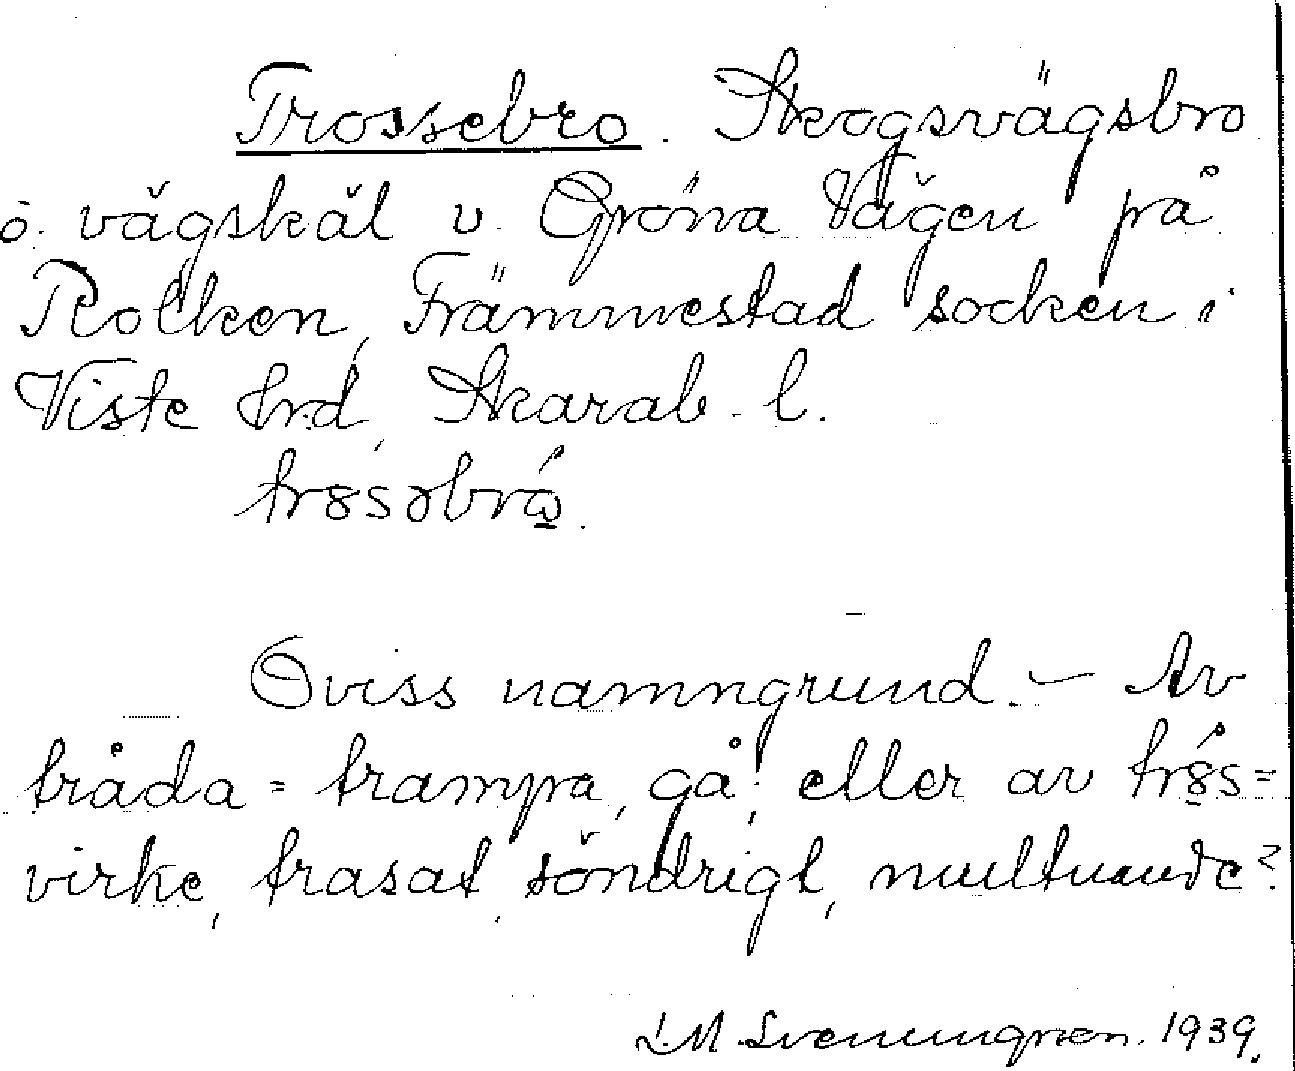 Trossebro. Skogsvägsbro
ö. vägskäl v. Gröna Vägen på
Rolken, Främmestad socken i
Viste hrd, Skarab. l.
Oviss namngrund. – Av
tråda = trampa, gå; eller av
virke, trasat, söndrigt, multnande?
1939.